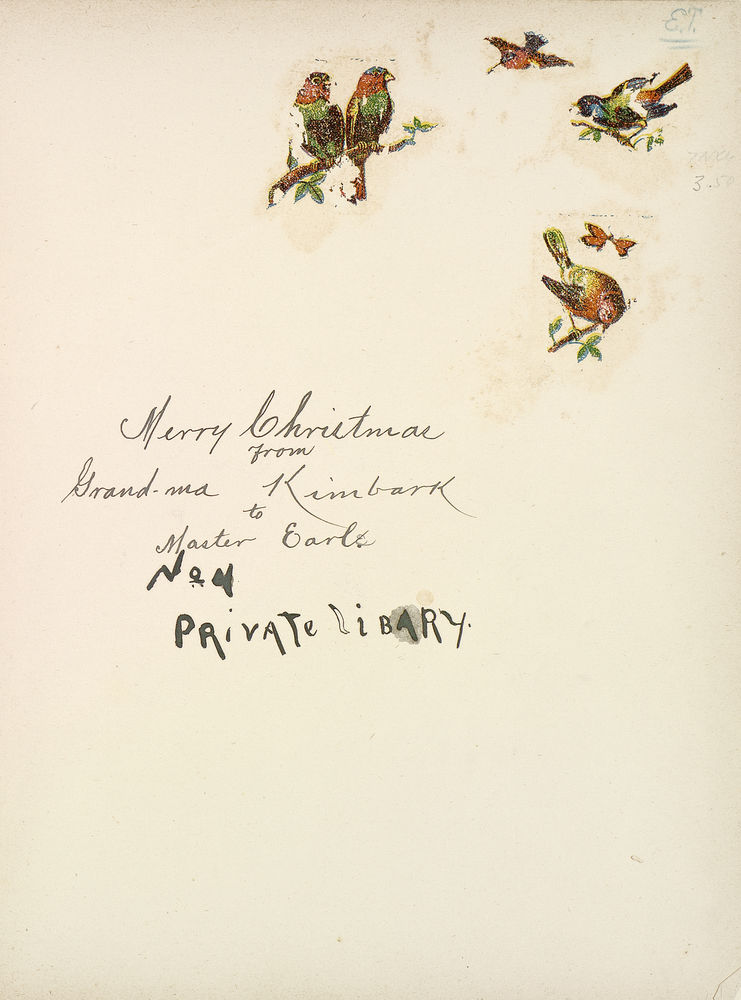 E.T.
3.50
Merry Christmas
from
Grand-ma Kimbark
to
Master Earle
No 4
PRivATe liBARY.